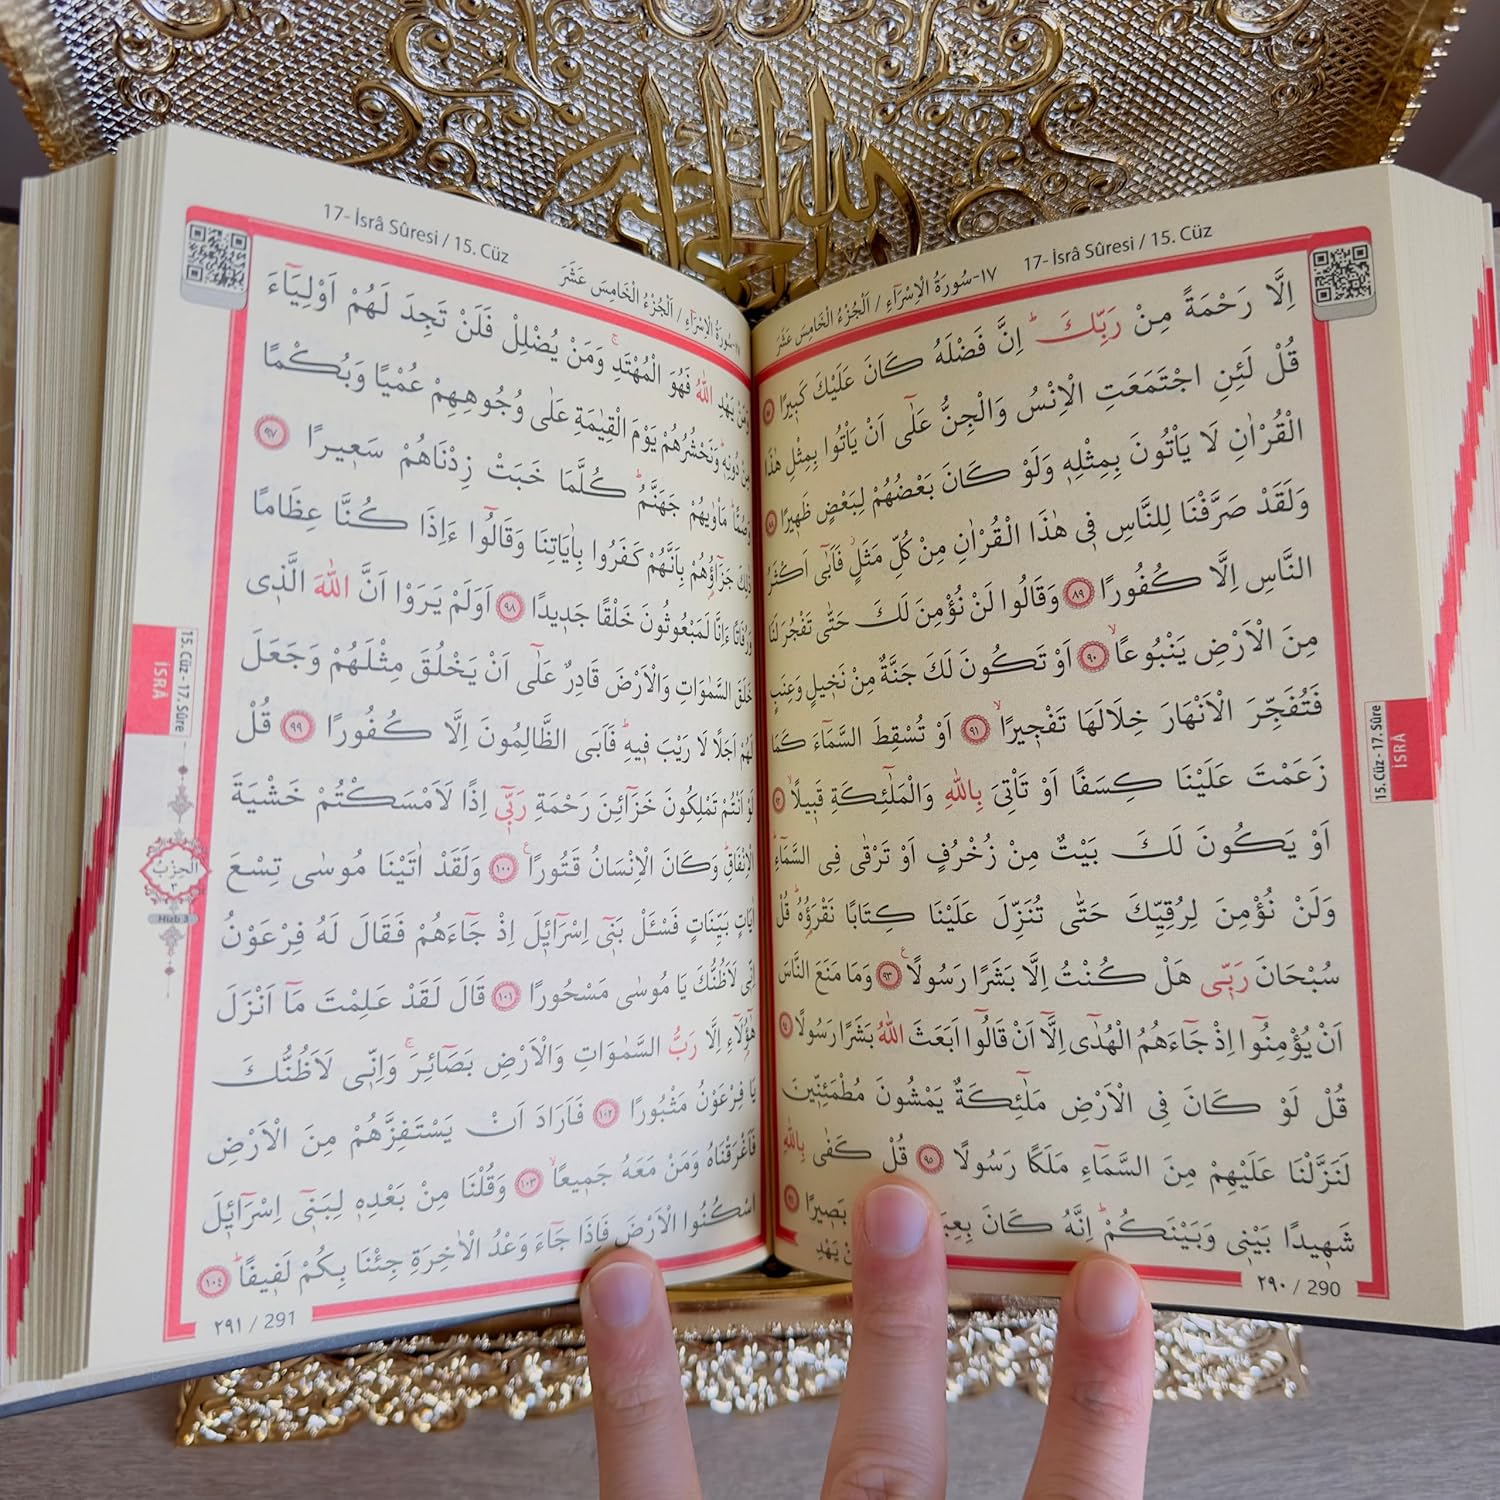 17- İsrâ Sûresi / 15. Cüz
١٧-سُورَةُ الْاِسْرَاءِ / اَلْجُزْءُ الْخَامِسَ عَشَرَ
اِلَّا رَحْمَةً مِنْ رَبِّكَۜ اِنَّ فَضْلَهُ كَانَ عَلَيْكَ كَب۪يرًا ﴿٨٧﴾
قُلْ لَئِنِ اجْتَمَعَتِ الْاِنْسُ وَالْجِنُّ عَلٰٓى اَنْ يَأْتُوا بِمِثْلِ هٰذَا
الْقُرْاٰنِ لَا يَأْتُونَ بِمِثْلِه۪ وَلَوْ كَانَ بَعْضُهُمْ لِبَعْضٍ ظَه۪يرًا ﴿٨٨﴾
وَلَقَدْ صَرَّفْنَا لِلنَّاسِ ف۪ي هٰذَا الْقُرْاٰنِ مِنْ كُلِّ مَثَلٍۘ فَاَبٰٓى اَكْثَرُ
النَّاسِ اِلَّا كُفُورًا ﴿٨٩﴾ وَقَالُوا لَنْ نُؤْمِنَ لَكَ حَتّٰى تَفْجُرَ لَنَا
مِنَ الْاَرْضِ يَنْبُوعًاۙ ﴿٩٠﴾ اَوْ تَكُونَ لَكَ جَنَّةٌ مِنْ نَخ۪يلٍ وَعِنَبٍ
فَتُفَجِّرَ الْاَنْهَارَ خِلَالَهَا تَفْج۪يرًاۙ ﴿٩١﴾ اَوْ تُسْقِطَ السَّمَٓاءَ كَمَا
زَعَمْتَ عَلَيْنَا كِسَفًا اَوْ تَأْتِيَ بِاللّٰهِ وَالْمَلٰٓئِكَةِ قَب۪يلًاۙ ﴿٩٢﴾
اَوْ يَكُونَ لَكَ بَيْتٌ مِنْ زُخْرُفٍ اَوْ تَرْقٰى فِي السَّمَٓاءِۜ
وَلَنْ نُؤْمِنَ لِرُقِيِّكَ حَتّٰى تُنَزِّلَ عَلَيْنَا كِتَابًا نَقْرَؤُ۬هُۜ قُلْ
سُبْحَانَ رَبّ۪ي هَلْ كُنْتُ اِلَّا بَشَرًا رَسُولًا۟ ﴿٩٣﴾ وَمَا مَنَعَ النَّاسَ
اَنْ يُؤْمِنُٓوا اِذْ جَٓاءَهُمُ الْهُدٰٓى اِلَّٓا اَنْ قَالُٓوا اَبَعَثَ اللّٰهُ بَشَرًا رَسُولًا ﴿٩٤﴾
قُلْ لَوْ كَانَ فِي الْاَرْضِ مَلٰٓئِكَةٌ يَمْشُونَ مُطْمَئِنّ۪ينَ
لَنَزَّلْنَا عَلَيْهِمْ مِنَ السَّمَٓاءِ مَلَكًا رَسُولًا ﴿٩٥﴾ قُلْ كَفٰى بِاللّٰهِ
شَه۪يدًا بَيْن۪ي وَبَيْنَكُمْۜ اِنَّهُ كَانَ بَص۪يرًا ﴿٩٦﴾
يَهْدِ
٢٩٠ / 290
15. Cüz - 17. Sûre
İSRÂ
17- İsrâ Sûresi / 15. Cüz
١٧-سُورَةُ الْاِسْرَاءِ / اَلْجُزْءُ الْخَامِسَ عَشَرَ
وَمَنْ يَهْدِ اللّٰهُ فَهُوَ الْمُهْتَدِۚ وَمَنْ يُضْلِلْ فَلَنْ تَجِدَ لَهُمْ اَوْلِيَٓاءَ
مِنْ دُونِه۪ۜ وَنَحْشُرُهُمْ يَوْمَ الْقِيٰمَةِ عَلٰى وُجُوهِهِمْ عُمْيًا وَبُكْمًا
وَصُمًّاۜ مَأْوٰيهُمْ جَهَنَّمُۜ كُلَّمَا خَبَتْ زِدْنَاهُمْ سَع۪يرًا ﴿٩٧﴾
ذٰلِكَ جَزَٓاؤُ۬هُمْ بِاَنَّهُمْ كَفَرُوا بِاٰيَاتِنَا وَقَالُٓوا ءَاِذَا كُنَّا عِظَامًا
وَرُفَاتًا ءَاِنَّا لَمَبْعُوثُونَ خَلْقًا جَد۪يدًا ﴿٩٨﴾ اَوَلَمْ يَرَوْا اَنَّ اللّٰهَ الَّذ۪ي
خَلَقَ السَّمٰوَاتِ وَالْاَرْضَ قَادِرٌ عَلٰٓى اَنْ يَخْلُقَ مِثْلَهُمْ وَجَعَلَ
لَهُمْ اَجَلًا لَا رَيْبَ ف۪يهِۜ فَاَبَى الظَّالِمُونَ اِلَّا كُفُورًا ﴿٩٩﴾ قُلْ
لَوْ اَنْتُمْ تَمْلِكُونَ خَزَٓائِنَ رَحْمَةِ رَبّ۪ٓي اِذًا لَاَمْسَكْتُمْ خَشْيَةَ
الْاِنْفَاقِۜ وَكَانَ الْاِنْسَانُ قَتُورًا۟ ﴿١٠٠﴾ وَلَقَدْ اٰتَيْنَا مُوسٰى تِسْعَ
اٰيَاتٍ بَيِّنَاتٍ فَسْـَٔلْ بَن۪ٓي اِسْرَٓائ۪لَ اِذْ جَٓاءَهُمْ فَقَالَ لَهُ فِرْعَوْنُ
اِنّ۪ي لَاَظُنُّكَ يَا مُوسٰى مَسْحُورًا ﴿١٠١﴾ قَالَ لَقَدْ عَلِمْتَ مَٓا اَنْزَلَ
هٰٓؤُ۬لَٓاءِ اِلَّا رَبُّ السَّمٰوَاتِ وَالْاَرْضِ بَصَٓائِرَۚ وَاِنّ۪ي لَاَظُنُّكَ
يَا فِرْعَوْنُ مَثْبُورًا ﴿١٠٢﴾ فَاَرَادَ اَنْ يَسْتَفِزَّهُمْ مِنَ الْاَرْضِ
فَاَغْرَقْنَاهُ وَمَنْ مَعَهُ جَم۪يعًاۙ ﴿١٠٣﴾ وَقُلْنَا مِنْ بَعْدِه۪ لِبَن۪ٓي اِسْرَٓائ۪لَ
اسْكُنُوا الْاَرْضَ فَاِذَا جَٓاءَ وَعْدُ الْاٰخِرَةِ جِئْنَا بِكُمْ لَف۪يفًاۜ ﴿١٠٤﴾
٢٩١ / 291
15. Cüz - 17. Sûre
İSRÂ
اَلْحِزْبُ
٣
Hizb 3